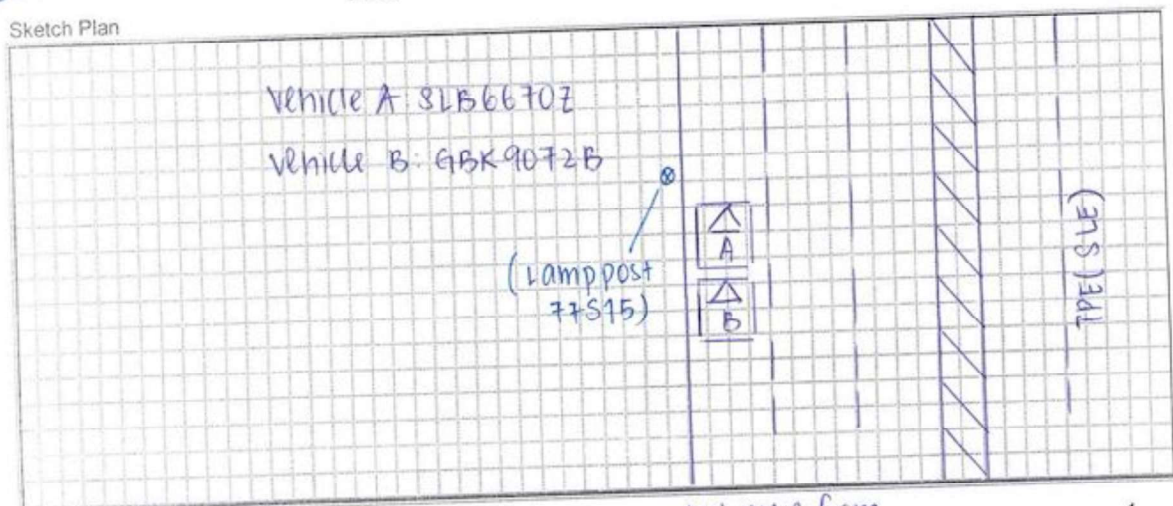 Sketch Plan
Vehicle A: SLB6670Z
Vehicle B: GBK9072B
(Lamppost
77S15)
A
B
TPE(SLE)